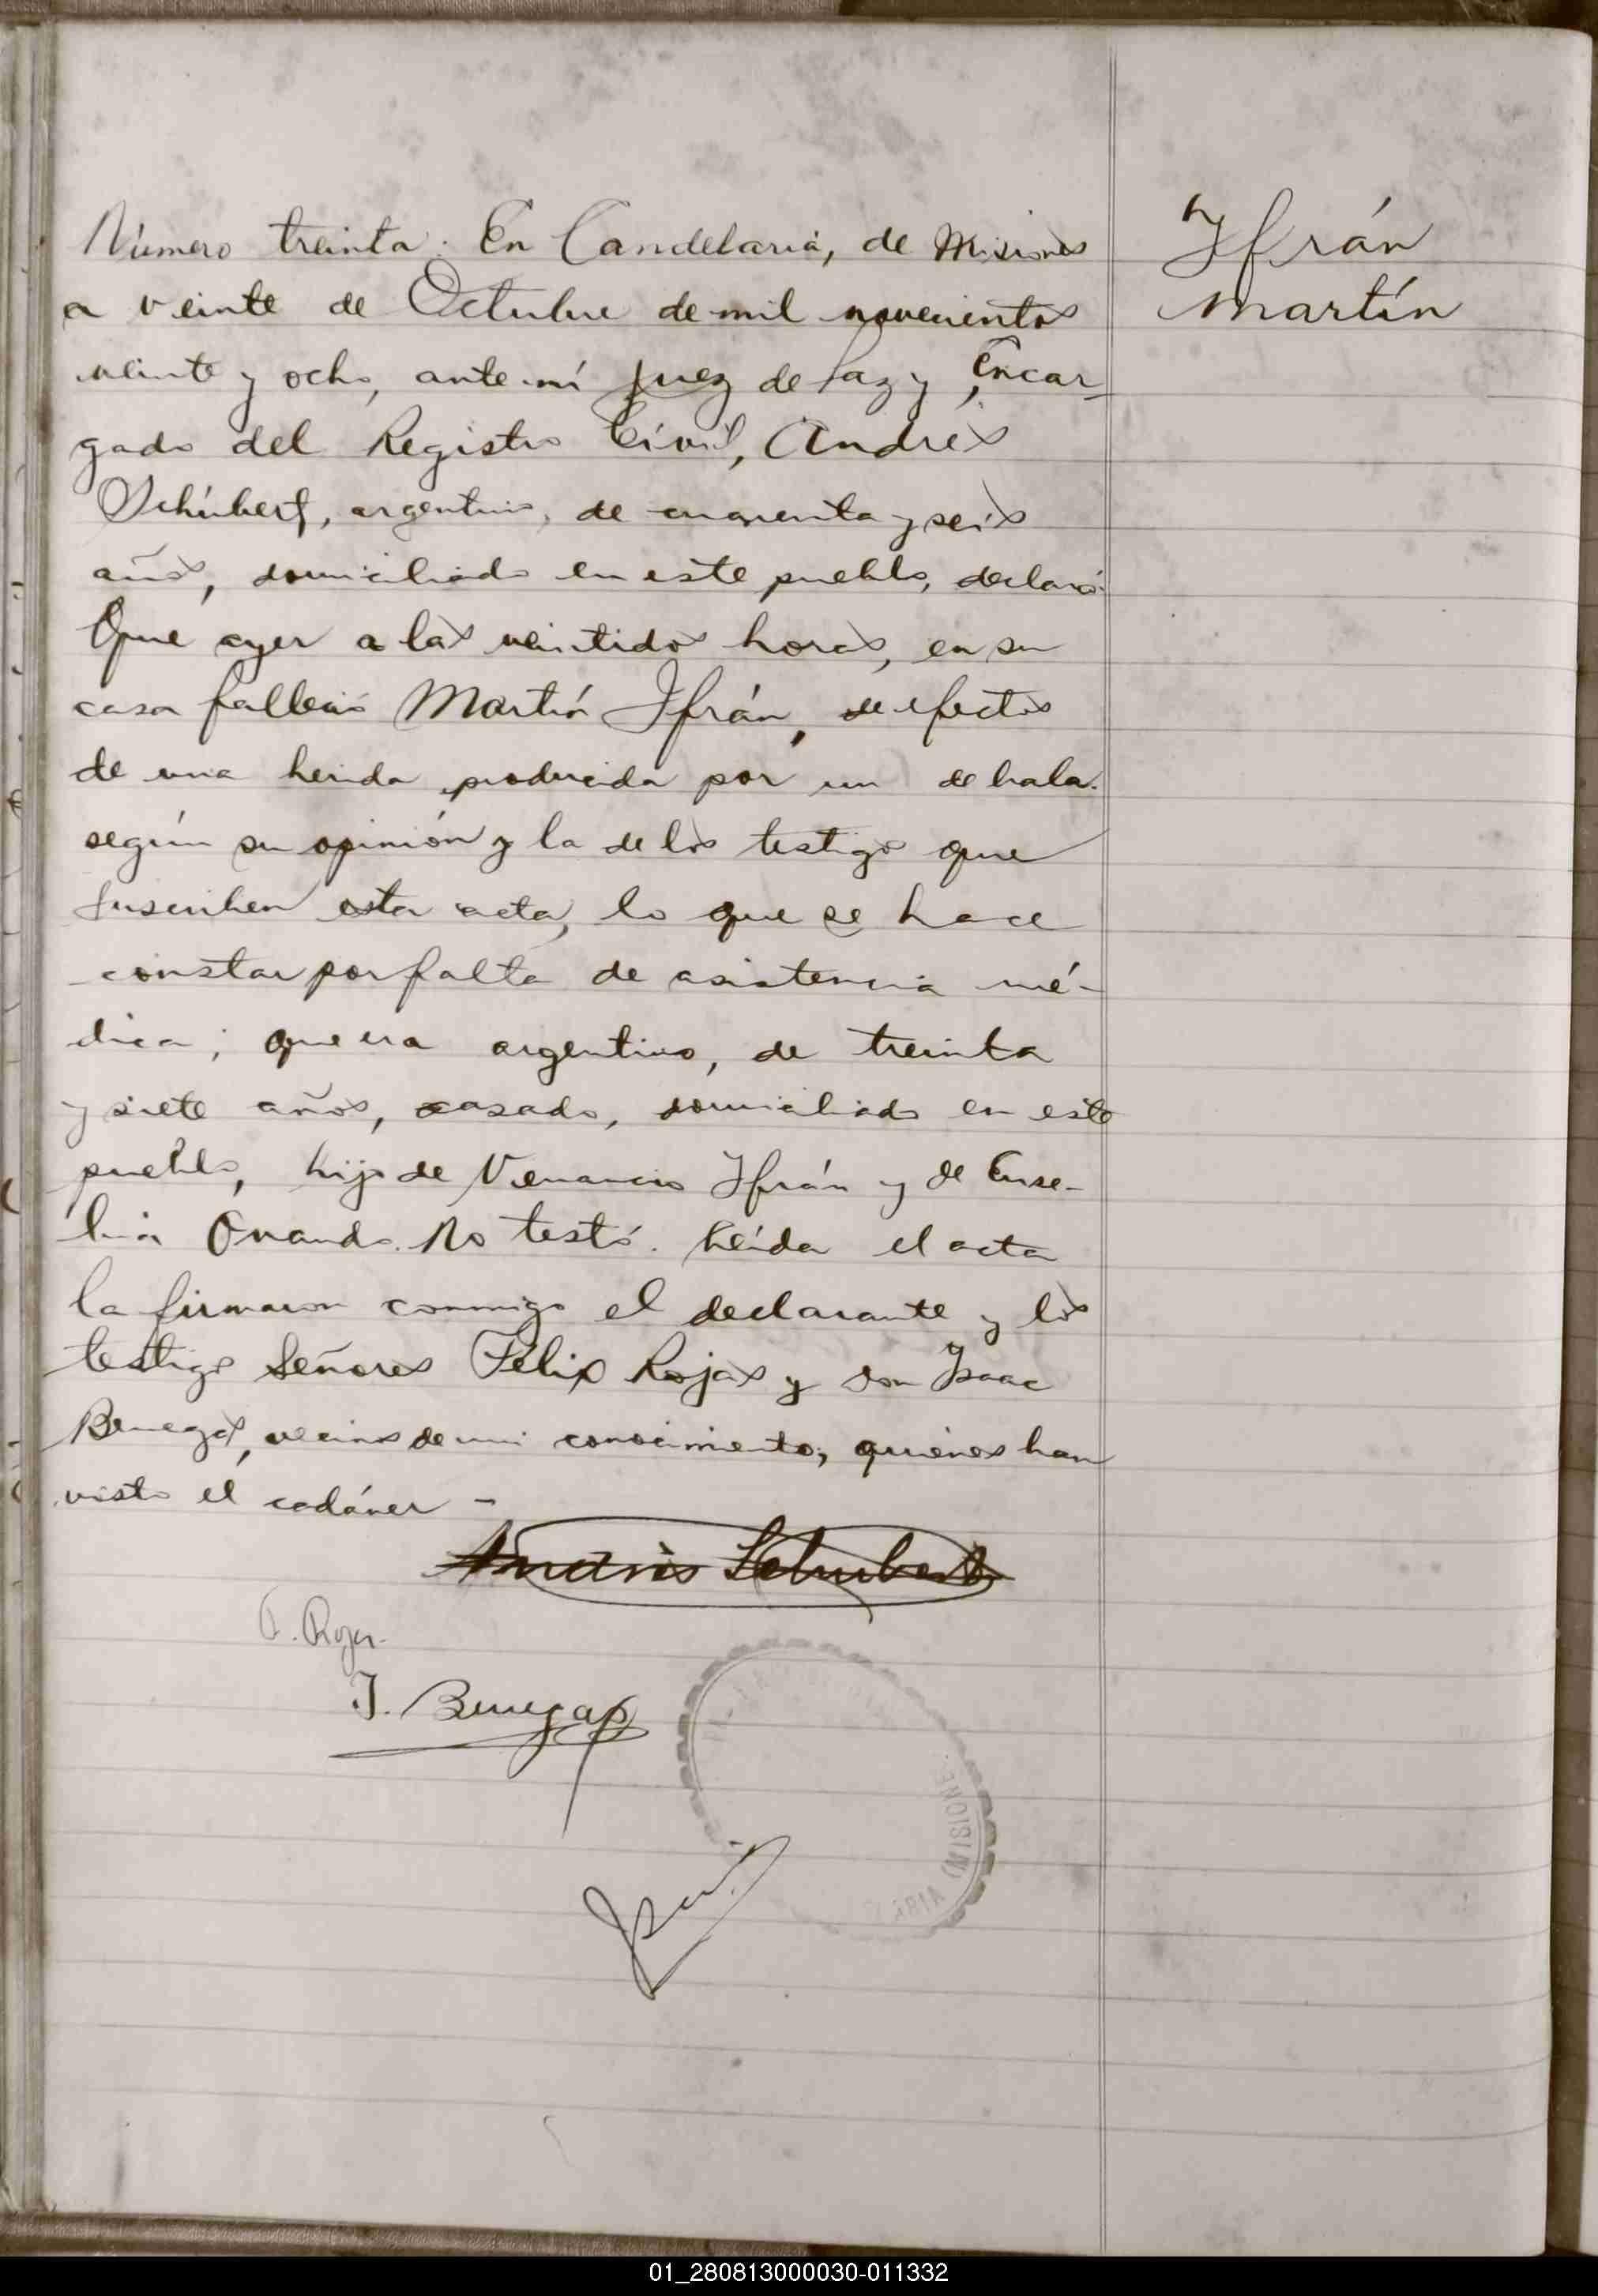 Número treinta. En Candelaria, de Misiones
a veinte de Octubre de mil novecientos
veinte y ocho, ante mí Juez de Paz y Encar-
gado del Registro Civil, Andrés
Schúbert, argentino, de cuarenta y seis
años, domiciliado en este pueblo, declaró:
Que ayer a las veintidos horas, en su
casa falleció Martín Ifrán, de efectos
de una herida producida por un de bala.
según su opinión y la de los testigos que
suscriben esta acta, lo que se hace
constar por falta de asistencia mé-
dica; que era argentino, de treinta
y siete años, casado, domiciliado en este
pueblo, hijo de Venancio Ifrán y de Euse-
bia Ovando. No testó. Leída el acta
la firmaron conmigo el declarante y los
testigos Señores Félix Rojas y don Isaac
Benegas, vecinos de mi conocimiento, quienes han
visto el cadáver -
Ifrán
Martín
Andrés Schubert
F. Rojas
I. Benegas
MISIONES
01_280813000030-011332